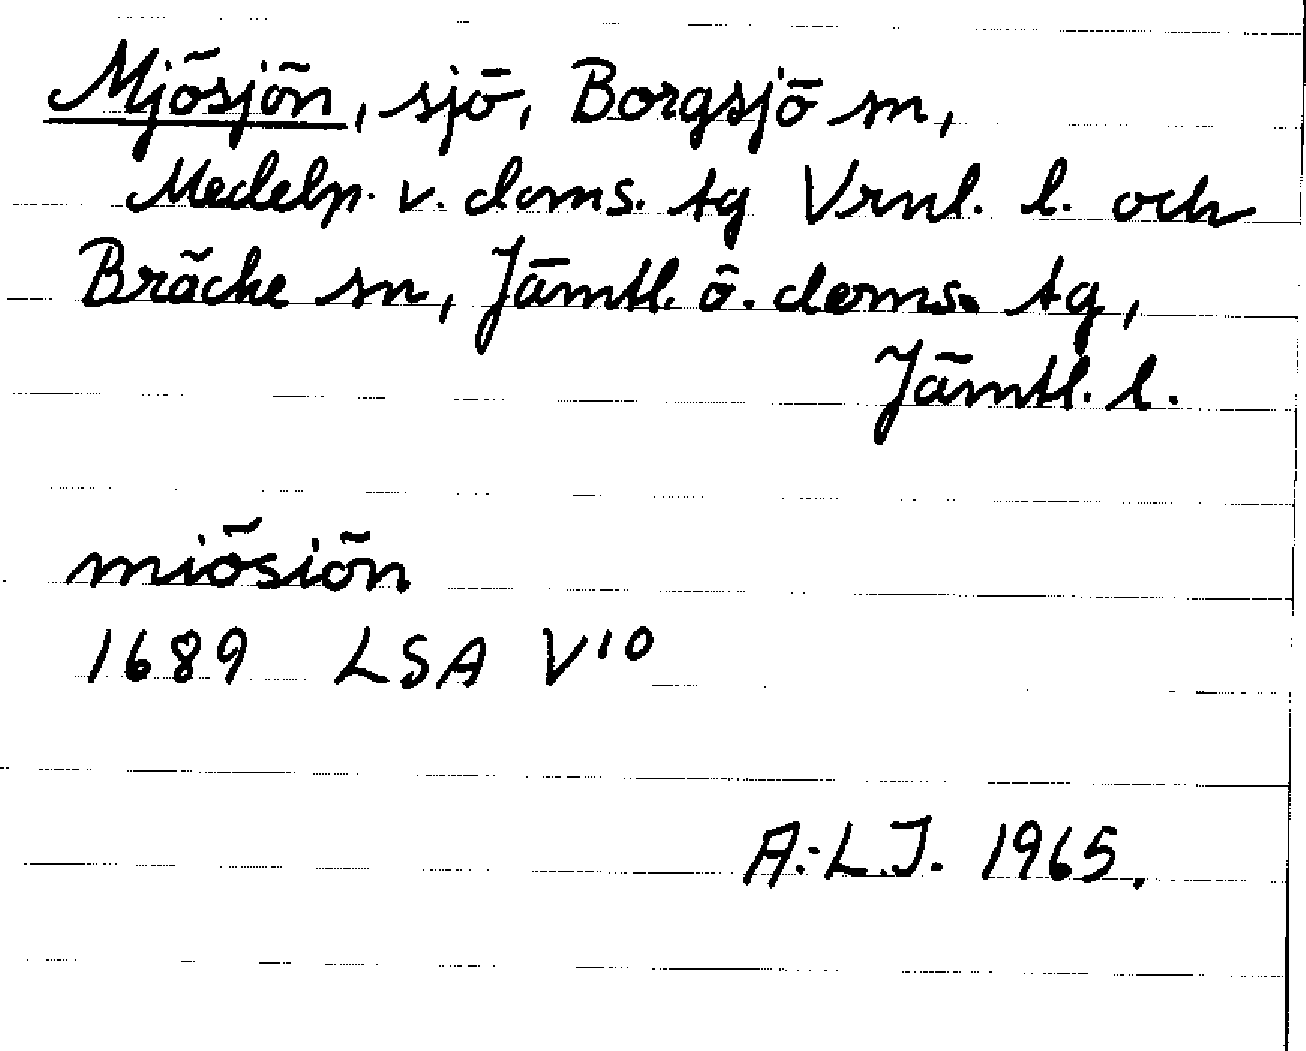 Mjösjön, sjö, Borgsjö sn,
Medelp. v. doms. tg Vrnl. l. och
Bräcke sn, Jämtl. ö. doms. tg,
Jämtl. l.
miösiön
1689 LSA V10
A.-L.J. 1965.